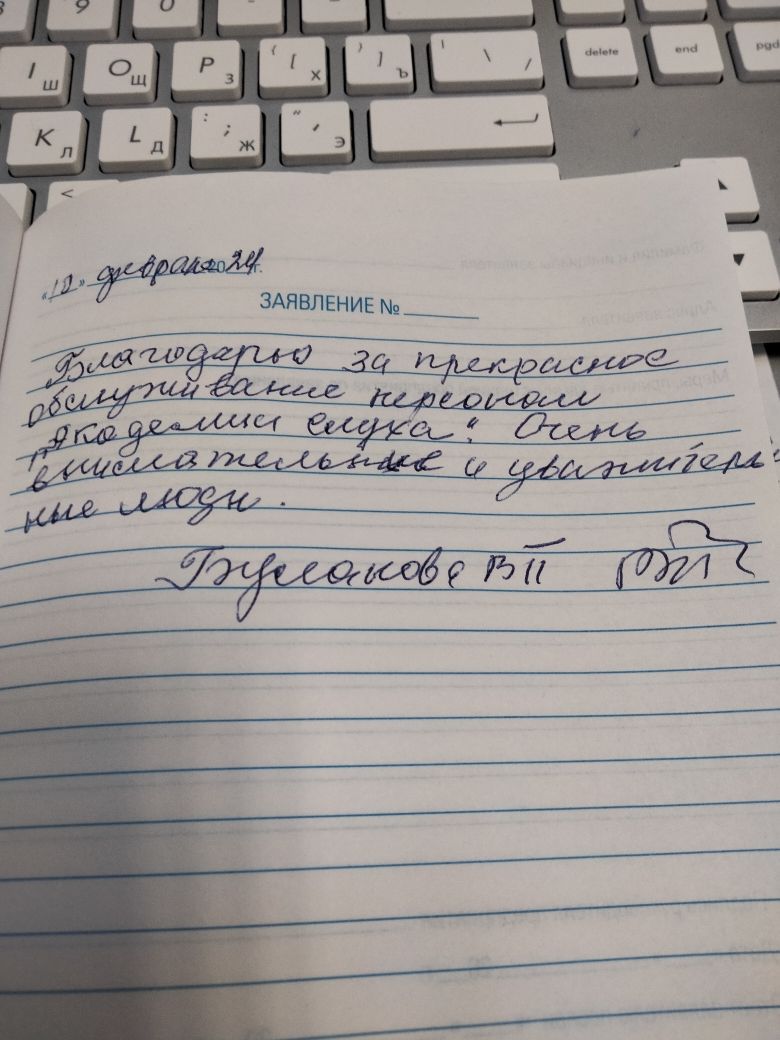 9 0
I Ш O Щ P З { [ Х } ] Ъ | \ / delete end pgd
K Л L Д : ; Ж " ' Э
<
"10" февраля 2024 г.
ЗАЯВЛЕНИЕ №
Благодарю за прекрасное
обслуживание персонал
"Академии слуха". Очень
внимательные и уважитель
ные люди.
ВП